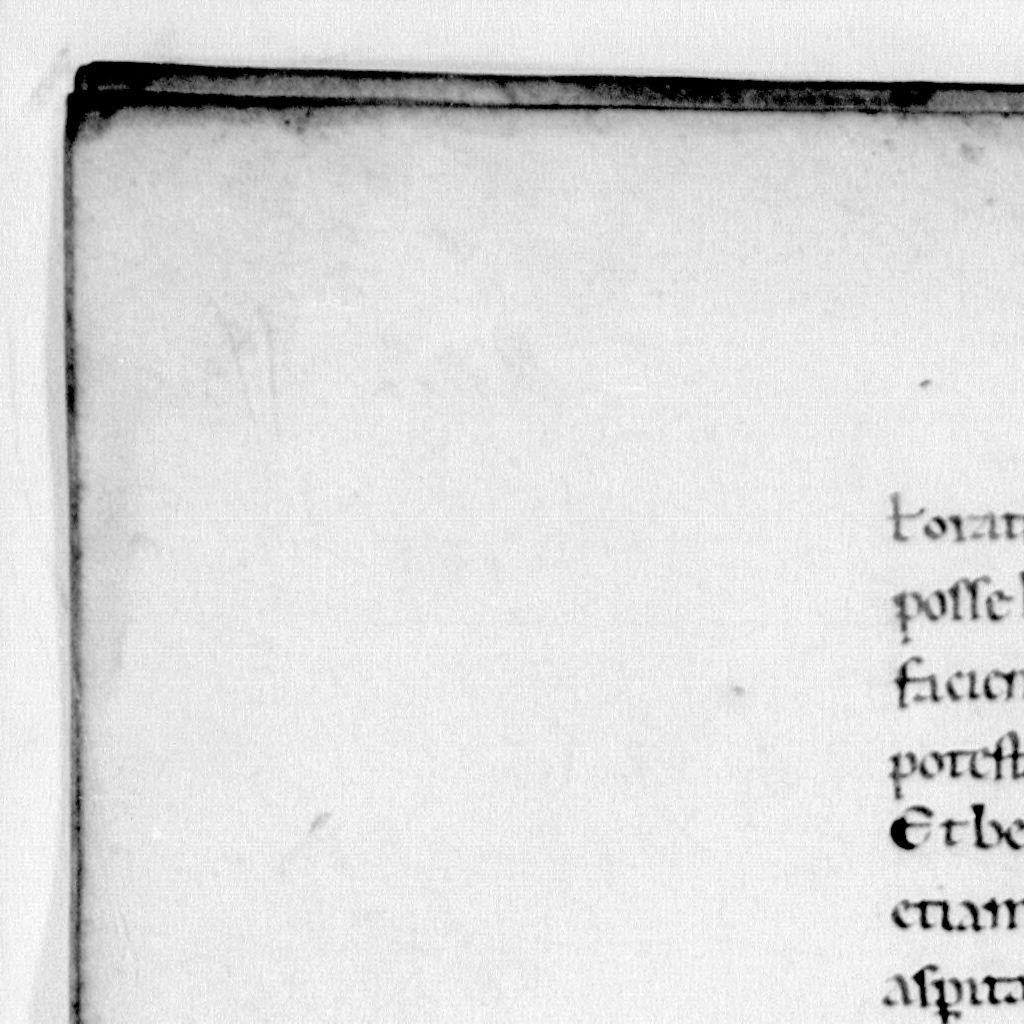 torat
posse
facien
potest
Et be
etiam
aspita